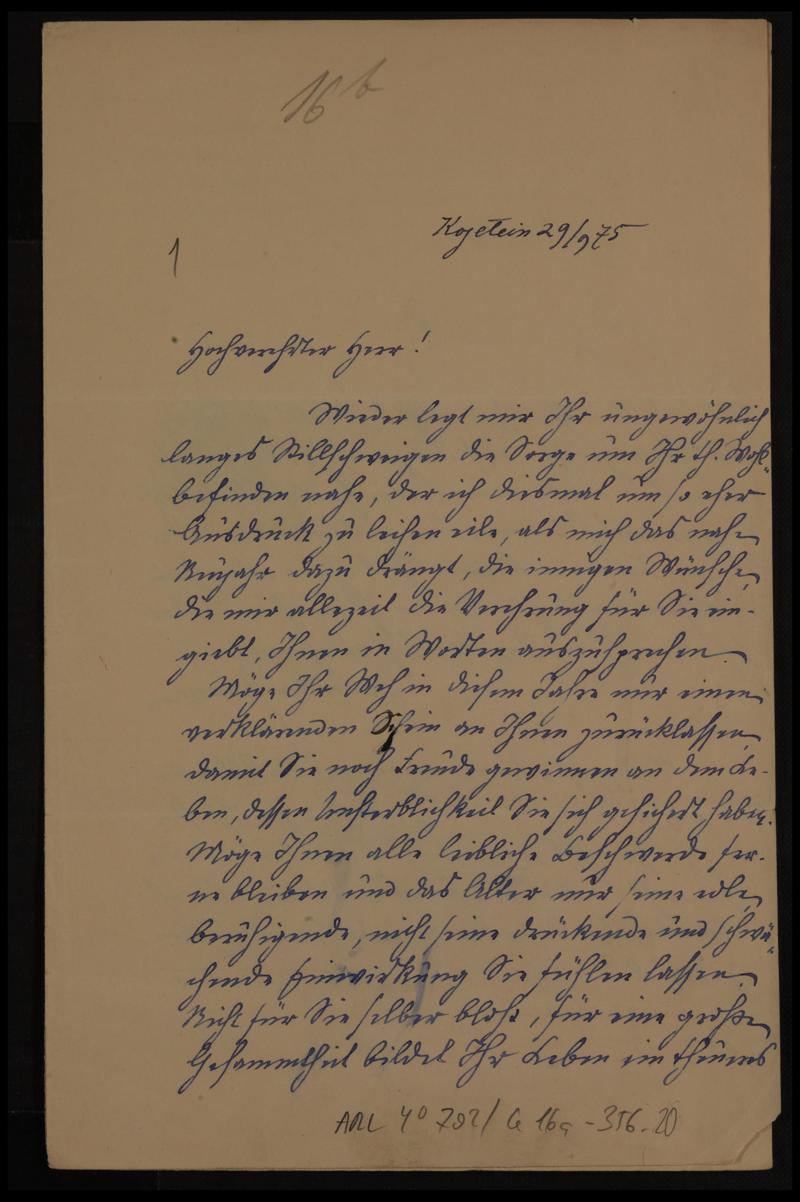 16b
Kojetein 29/9 75
1
Hochverehrter Herr!
Wieder legt mir Ihr ungewöhnlich
langes Stillschweigen die Sorge um Ihr th. Wohl-
befinden nahe, der ich diesmal um so eher
Ausdruck zu leihen eile, als mich das nahe
Neujahr dazu drängt, die innigen Wünsche,
die mir allezeit die Verehrung für Sie ein-
giebt, Ihnen in Worten auszusprechen.
Möge Ihr Weh in diesem Jahre nur einen
verklärenden Schein an Ihnen zurücklassen,
damit Sie noch Freude gewinnen an dem Le-
ben, dessen Unsterblichkeit Sie sich gesichert haben.
Möge Ihnen alle leibliche Beschwerde fer-
ne bleiben und das Alter nur seine edle,
beruhigende, nicht seine drückende und schwä-
chende Einwirkung Sie fühlen lassen.
Nicht für Sie selber bloß, für eine große
Gesammtheit bildet Ihr Leben ein theures
ARC 4° 792/ G 16a - 356.20